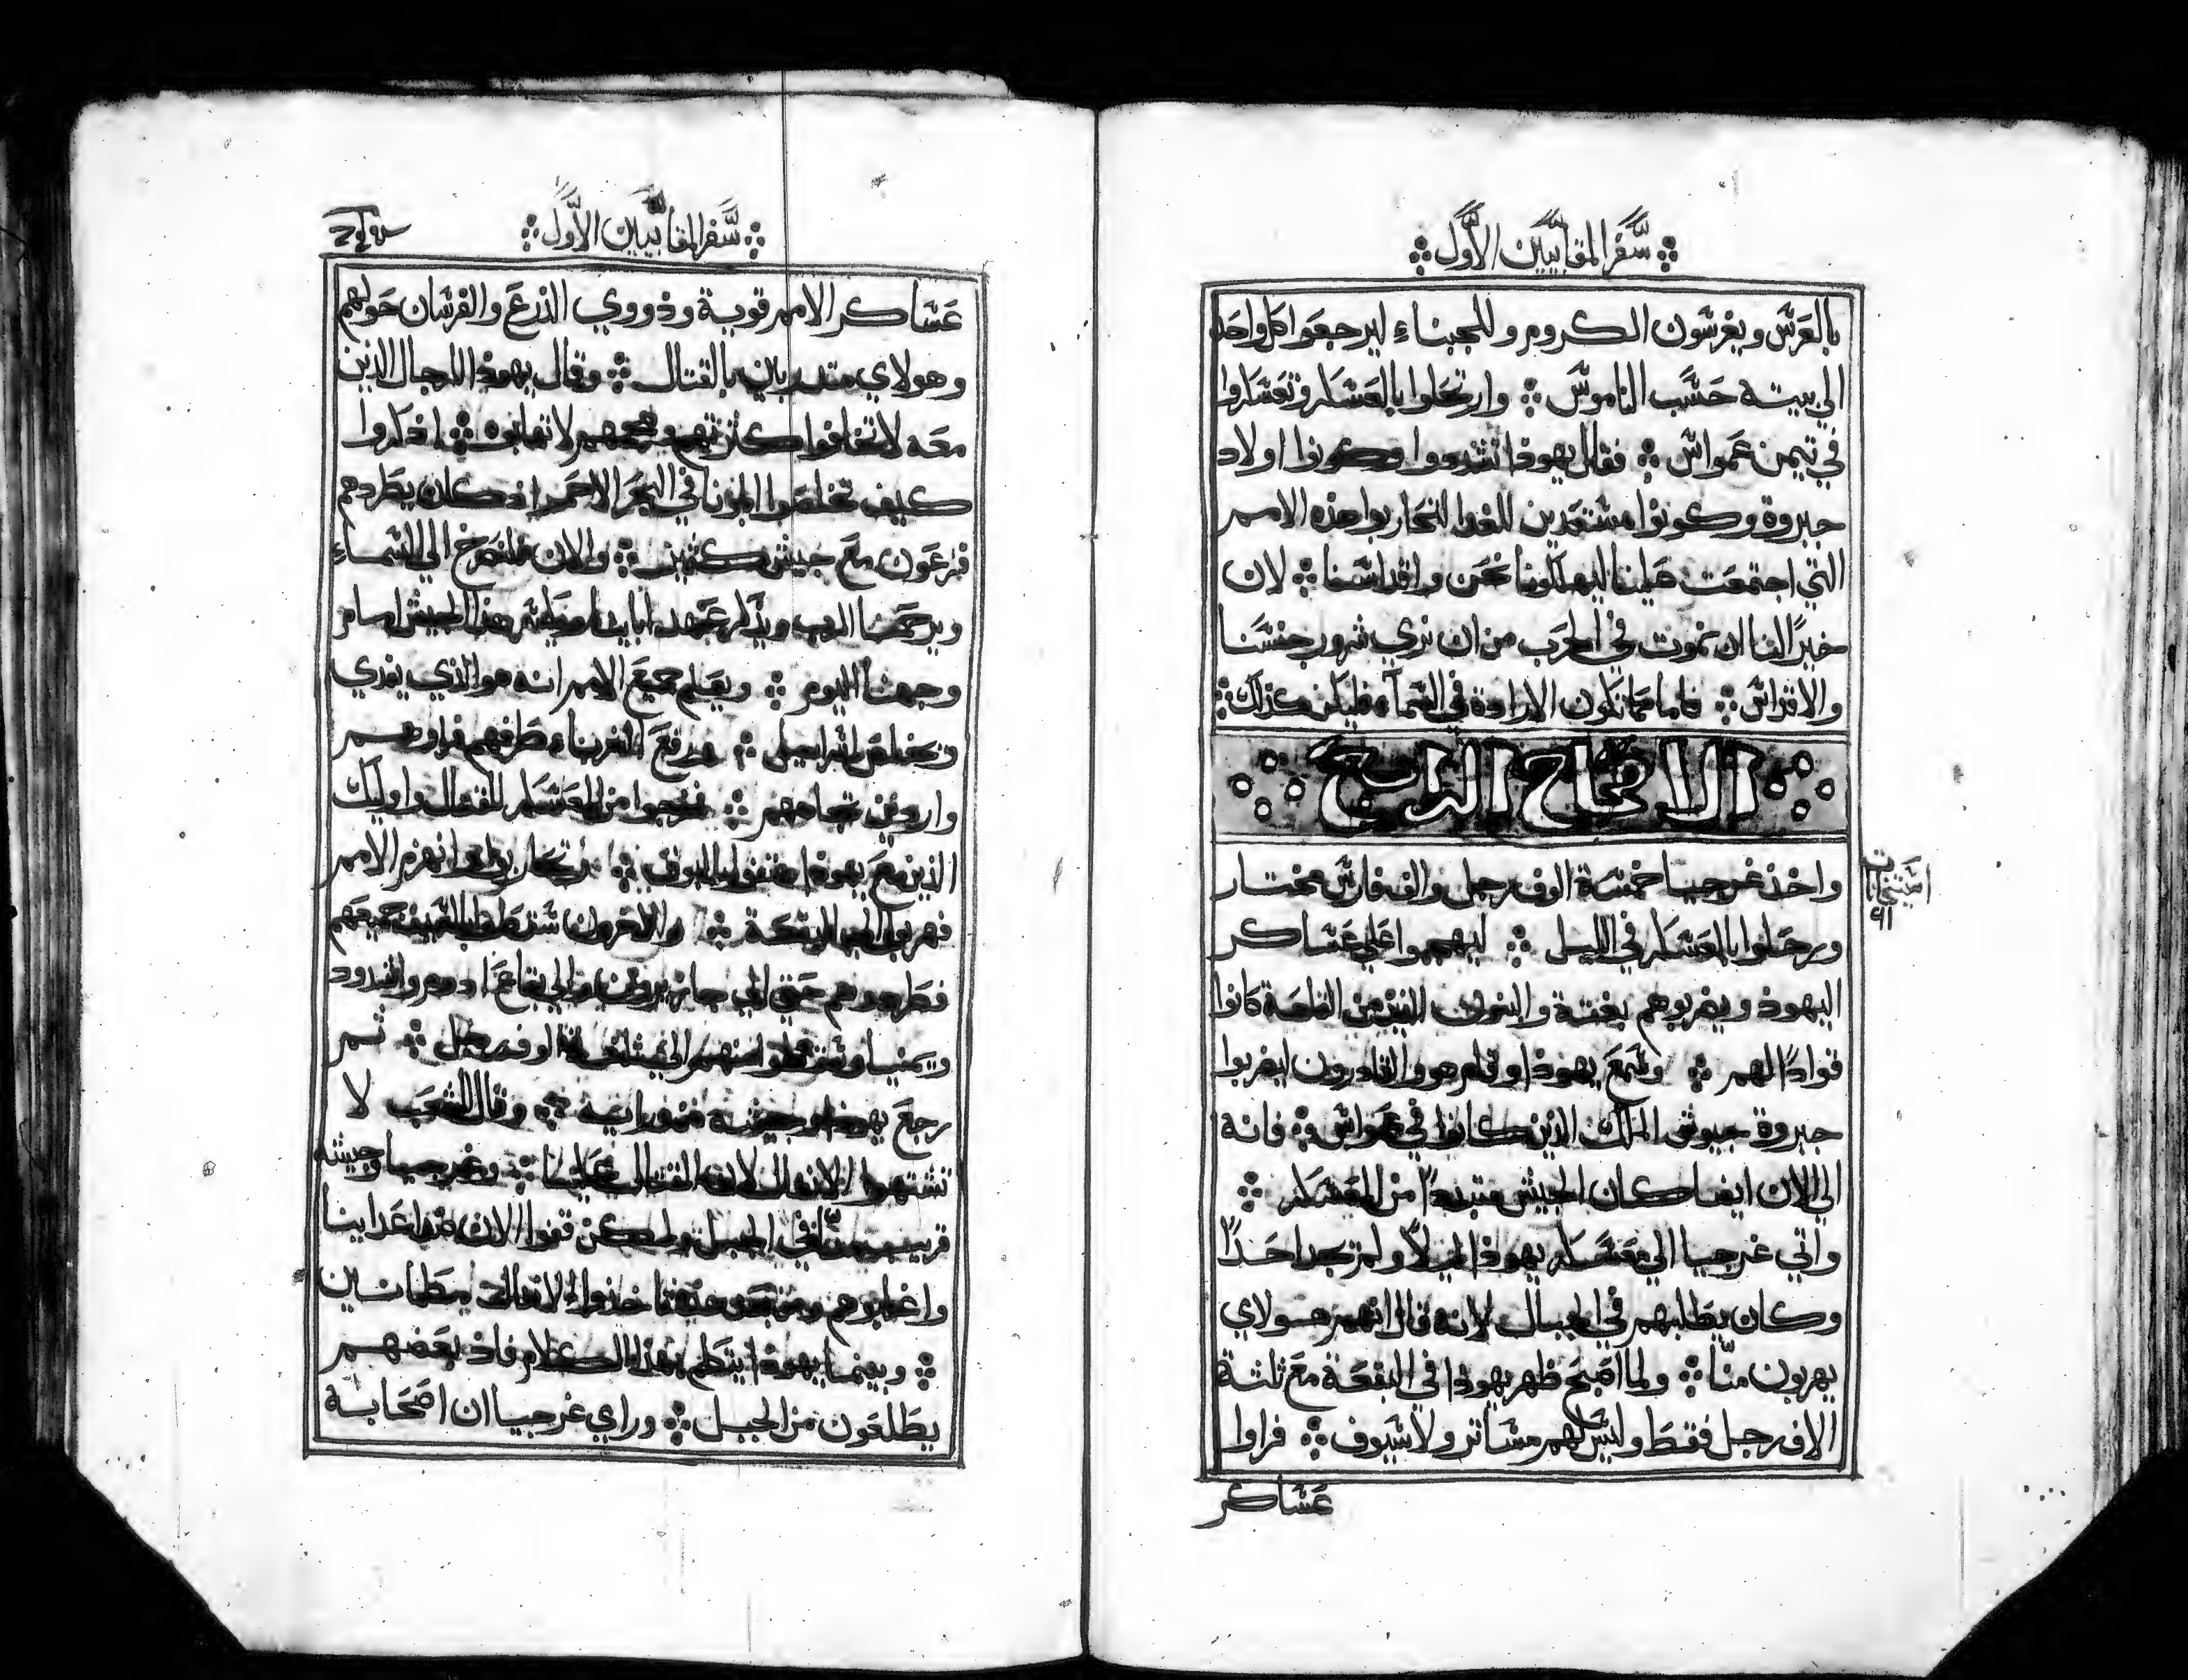 سفر المقابيين الاول
بالعرس ويغرسون الكروم وللجبناء ليرجعوا كل واحد
الي بيته حسب الناموس وارتحلوا بالعسكر وتعسكروا
في تيمن عمواس فقال يهوذا تشددوا وكونوا اولاد
جبروة وكونوا مستعدين للغدا لتحاربوا هذه الامم
التي اجتمعت علينا ليهلكونا نحن واقداسنا لان
خيرًا لنا ان نموت في الحرب من ان نري شرور جنسنا
والاقداس فاما كما تكون الارادة في السماء فليكن كذلك
الاصحاح الرابع
واخذ غرجيا خمسة الوف رجل والف فارس مختار
ورحلوا بالعسكر في الليل ليهجموا علي عساكر
اليهود ويضربوهم بغتة والبنون الذين من القلعة كانوا
قوادًا لهم وسمع يهوذا وقام هو والقادرون ليضربوا
جبروة جيوش الملك الذين كانوا في عمواس فانه
الي الان ايضا كان الجيش متبددًا من المعسكر
واتي غرجيا الي معسكر يهوذا ليلاً ولم يجد احدًا
وكان يطلبهم في الجبال لانه قال انهم هولاي
يهربون منّا ولما اصبح ظهر يهوذا في البقعة مع ثلثة
الاف رجل فقط وليس لهم مساتر ولا سيوف فراوا
عساكر
سفر المقابيين الاول
عساكر الامم قوية وذووي الدرع والفرسان حولهم
وهولاي متدربين بالقتال وقال يهوذا للرجال الذين
معه لا تخافوا كثرتهم وهجمهم لا تهابوه اذكروا
كيف تخلصوا ابونا في البحر الاحمر اذ كان يطردهم
فرعون مع جيش كثير والان فلنصرخ الي السماء
ويرحمنا الرب ويذكر عهد ابائنا هذا الجيش امام
وجهنا اليوم ويعلم جميع الامم انه هو الذي يفدي
ويخلص اسرائيل فرفع الغرباء طرفهم فراوهم
واردين تجاههم فخرجوا من المعسكر للقتال واوليك
الذين مع يهوذا بالبوق وتحاربوا وانهزم الامم
فهربوا الي البقعة والاخرون سقطوا بالسيف جميعهم
فطردوهم حتي الي جازيرون والي بقاع ادوم واشدود
ويمنيا وسقطوا منهم الي ثلثة الوف رجل ثم
رجع يهوذا وجيشه وقال للشعب لا
تشتهوا الانفال لان القتال علينا وغرجيا وجيشه
قريب منّا في الجبل ولكن قفوا الان ضد اعداينا
واغلبوهم ومن بعد خذوا الانفال مطمانين
وبينما يهوذا يتكلم بهذا الكلام فاذ بعضهم
يطلعون من الجبل وراي غرجيا ان اصحابه